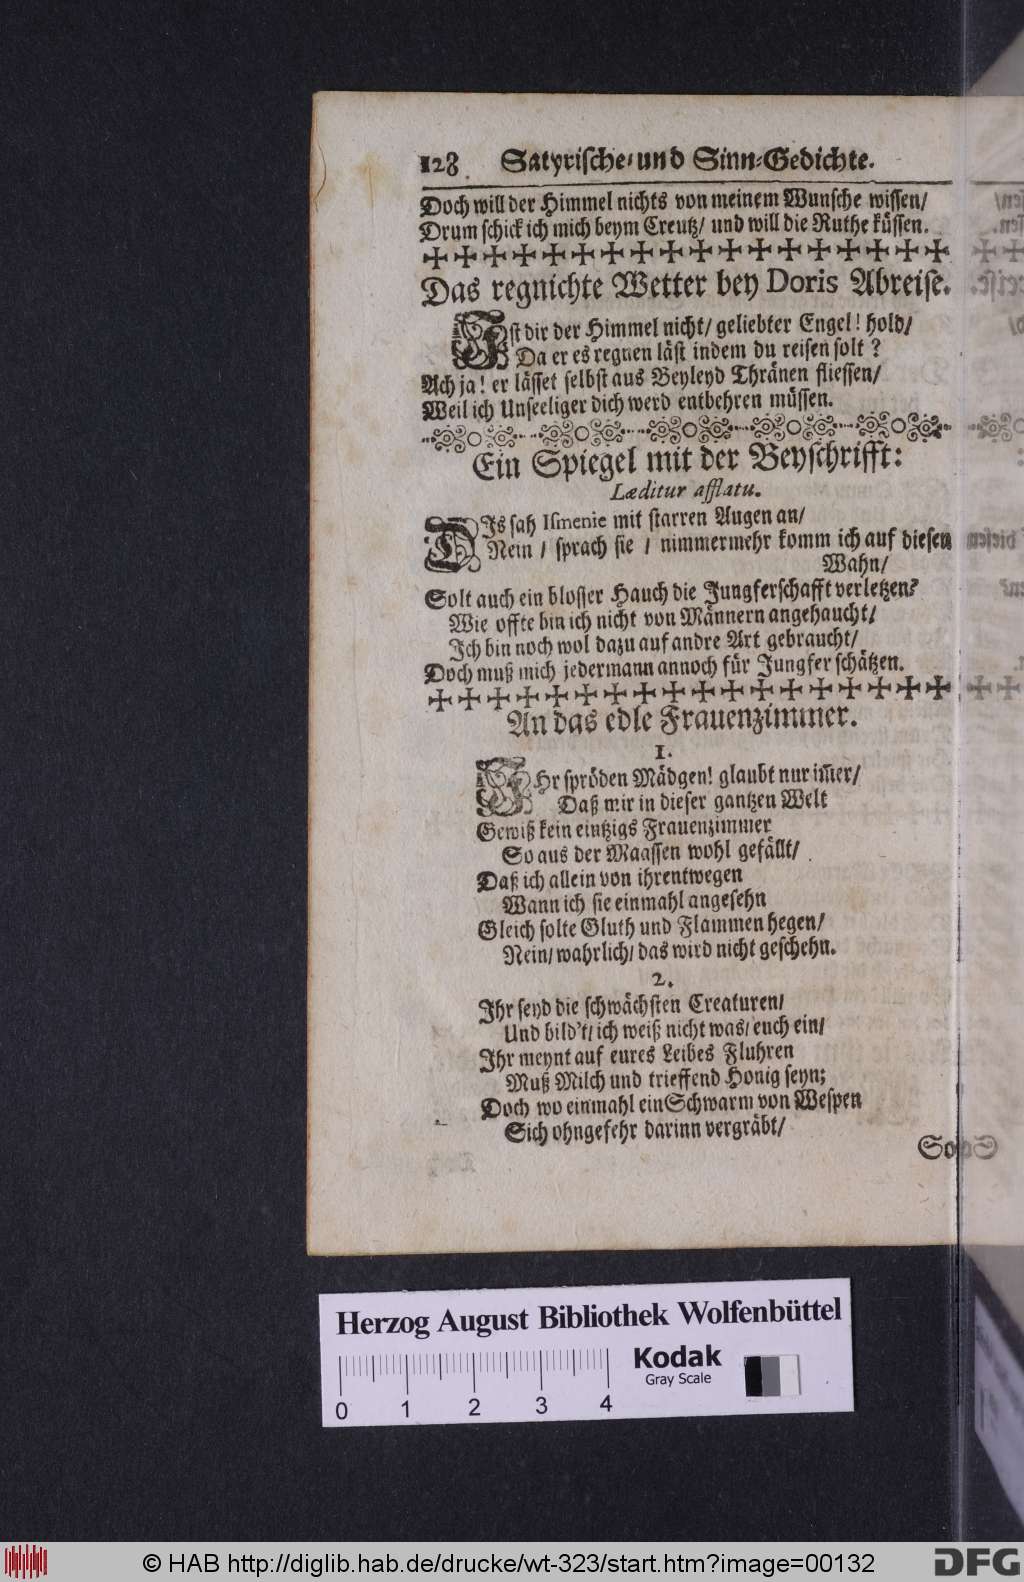 128 Satyrische- und Sinn-Gedichte.
Doch will der Himmel nichts von meinem Wunsche wissen/
Drum schick ich mich beym Creutz/ und will die Ruthe küssen.
Das regnichte Wetter bey Doris Abreise.
Ist dir der Himmel nicht/ geliebter Engel! hold/
Da er es regnen läst indem du reisen solt?
Ach ja! er lässet selbst aus Beyleyd Thränen fliessen/
Weil ich Unseeliger dich werd entbehren müssen.
Ein Spiegel mit der Beyschrifft:
Læditur afflatu.
DIs sah Ismenie mit starren Augen an/
Nein/ sprach sie/ nimmermehr komm ich auf diesen
Wahn/
Solt auch ein blosser Hauch die Jungferschafft verletzen?
Wie offte bin ich nicht von Männern angehaucht/
Ich bin noch wol dazu auf andre Art gebraucht/
Doch muß mich jedermann annoch für Jungfer schätzen.
An das edle Frauenzimmer.
1.
IHr spröden Mädgen! glaubt nur im̄er/
Daß mir in dieser gantzen Welt
Gewiß kein eintzigs Frauenzimmer
So aus der Maassen wohl gefällt/
Daß ich allein von ihrentwegen
Wann ich sie einmahl angesehn
Gleich solte Gluth und Flammen hegen/
Nein/ wahrlich/ das wird nicht geschehn.
2.
Ihr seyd die schwächsten Creaturen/
Und bild't/ ich weiß nicht was/ euch ein/
Ihr meynt auf eures Leibes Fluhren
Muß Milch und trieffend Honig seyn;
Doch wo einmahl ein Schwarm von Wespen
Sich ohngefehr darinn vergräbt/
Herzog August Bibliothek Wolfenbüttel
Kodak
Gray Scale
0 1 2 3 4
© HAB http://diglib.hab.de/drucke/wt-323/start.htm?image=00132
DFG